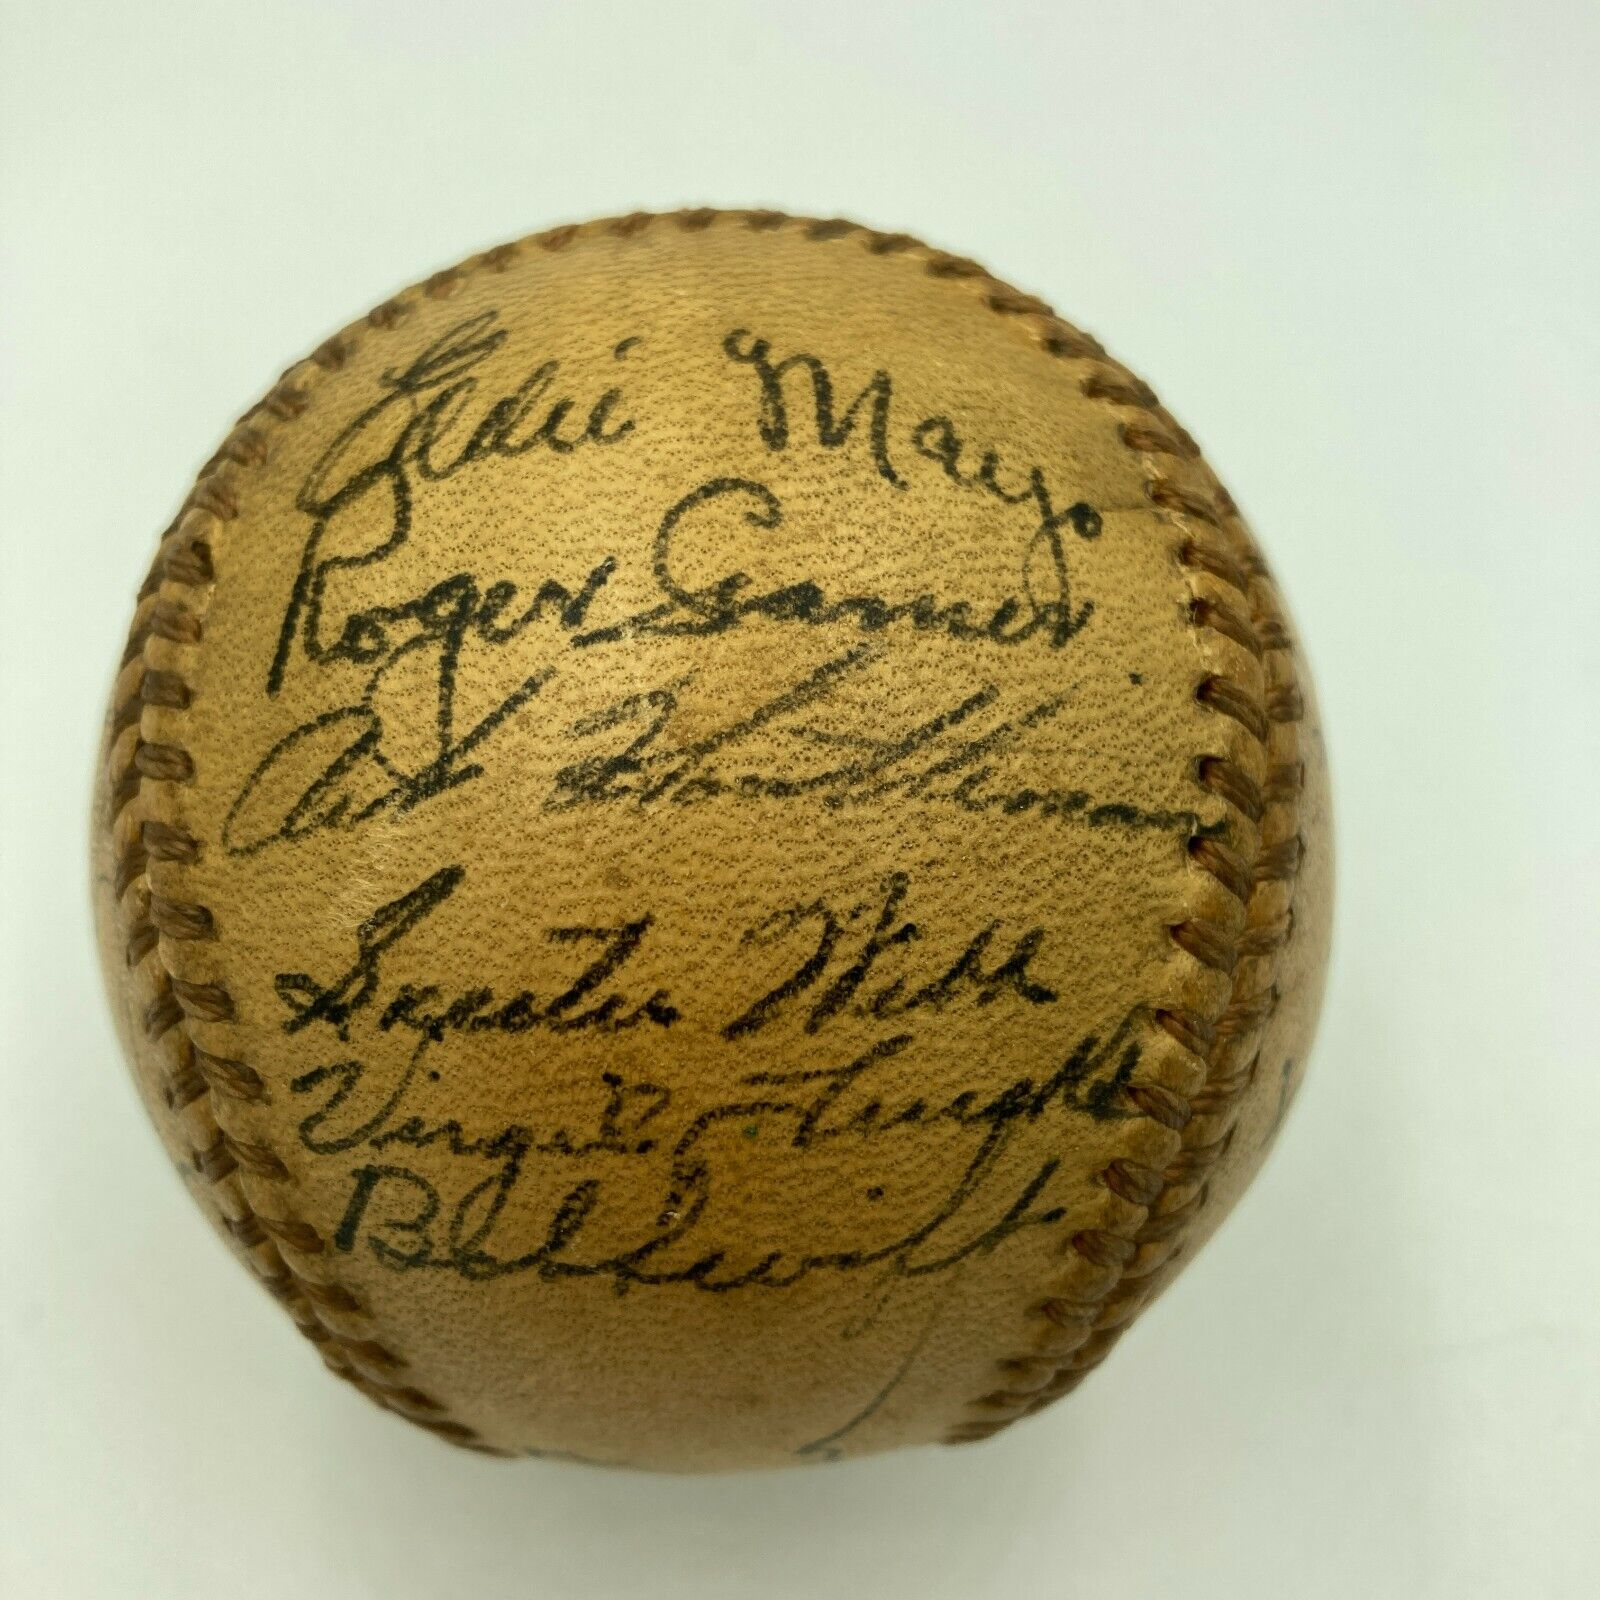 Eddie Mayo
Roger Cramer
Art Houtteman
Skeeter Webb
Virgil Trucks
Bob Swift